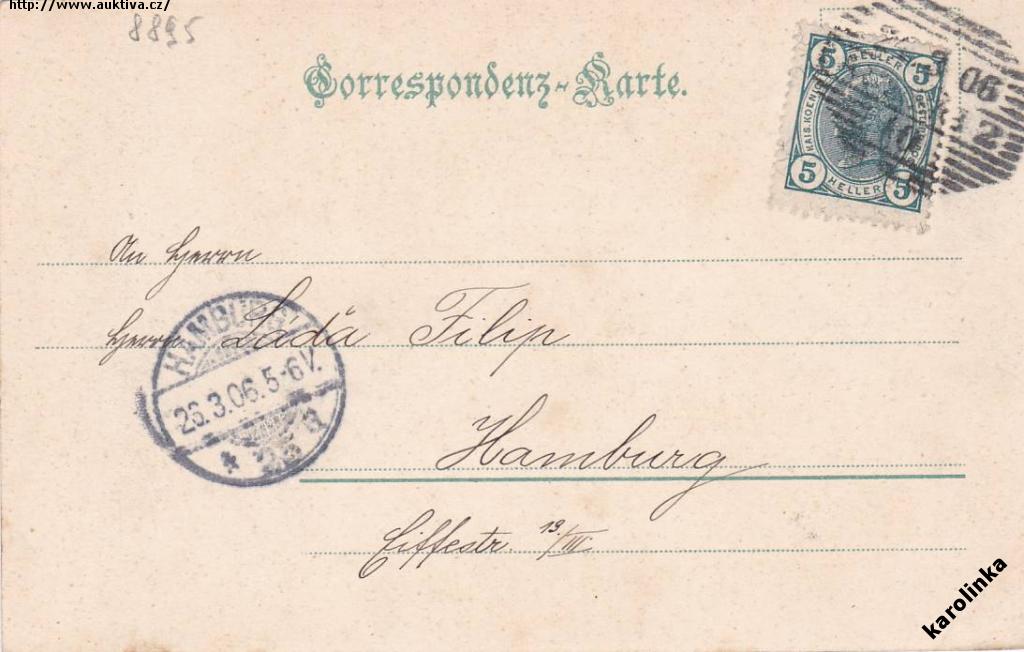 http://www.auktiva.cz/
8895
Correspondenz-Karte.
5 HELLER 5
KAIS. KOENIGL.
5 HELLER 5
06
2
An Herrn
Herrn Láďa Filip
HAMBURG
26.3.06.5-6V.
* 25 a
Hamburg
Eiffestr. 19/III
karolinka